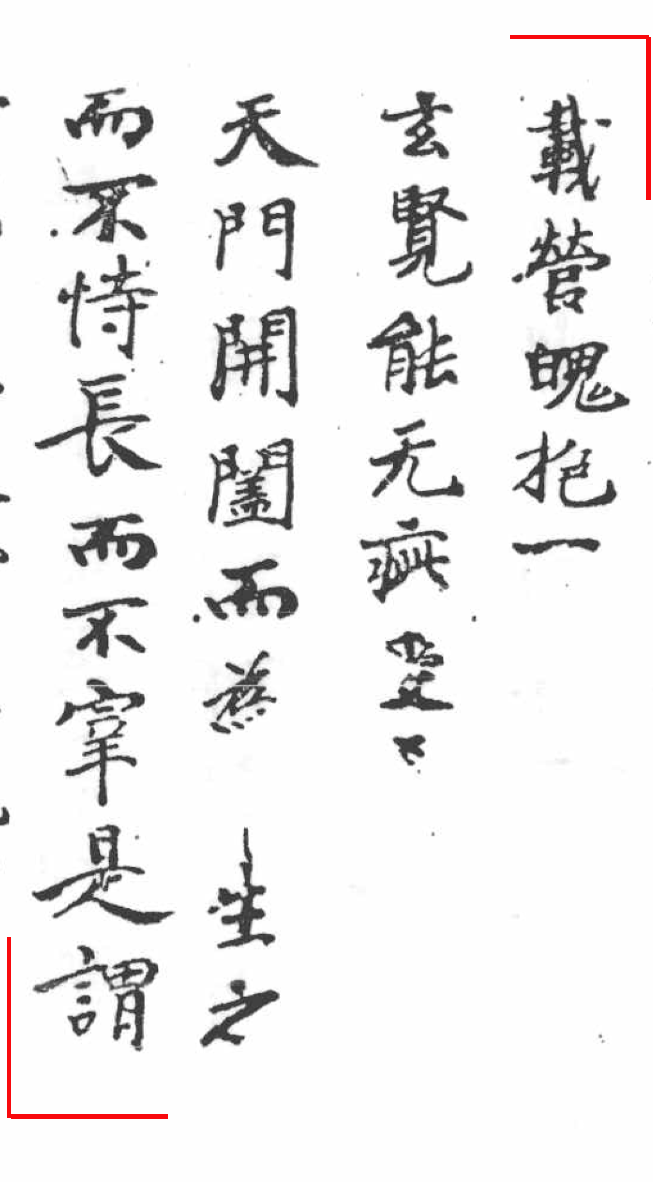 載營魄抱一
玄覽能无疵
天門開闔而 生之
而不恃長而不宰是謂